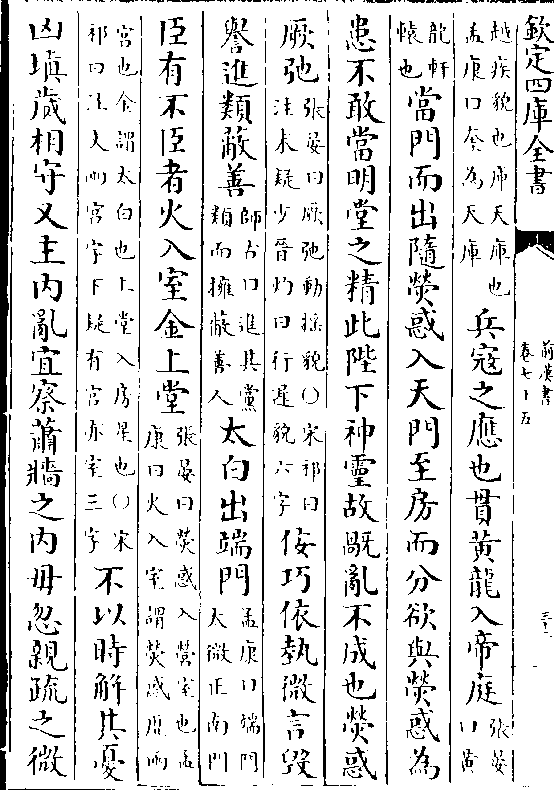 欽定四庫全書
前漢書
卷七十五
越疾貌也庫天庫也
孟康曰奎為天庫
兵寇之應也貫黃龍入帝庭
張晏
曰黃
龍軒
轅也
當門而出隨熒惑入天門至房而分欲與熒惑為
患不敢當明堂之精此陛下神靈故禍亂不成也熒惑
厥弛
張晏曰厥弛動搖貌○宋祁曰
注末疑少晉灼曰行遲貌六字
佞巧依埶微言毀
譽進類蔽善
師古曰進其黨
類而擁蔽善人
太白出端門
孟康曰端門
太微正南門
臣有不臣者火入室金上堂
張晏曰熒惑入營室也孟
康曰火入室謂熒惑歷兩
宮也金謂太白也上堂入房星也○宋
祁曰注文兩宮字下疑有宮亦室三字
不以時解其憂
凶填歲相守又主內亂宜察蕭牆之內毋忽親疏之微